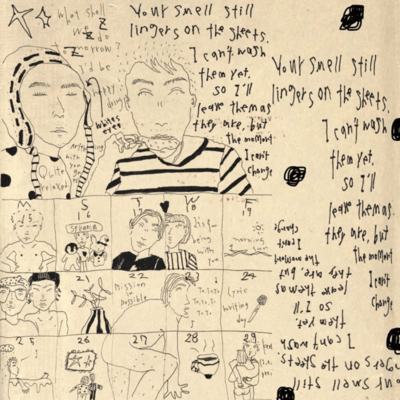 what shall
we do
tomorrow?
I'd be
happy
doing
whatever
Your smell still
lingers on the sheets.
I can't wash
them yet,
so I'll
leave them as
they are, but
the moment
I can't
change
Your smell still
lingers on the sheets.
I can't wash
them yet,
so I'll
leave them as
they are, but
the moment
I can't
change
change
I can't
the moment
they are, but
leave them as
so I'll
them yet,
I can't wash
lingers on the sheets.
Your smell still
with you
relaxed
M
S
T
W
F
15
16
17
18
19
morning
21
22
23
24
mission
possible
Lyric
writing
day
25
26
27
28
29